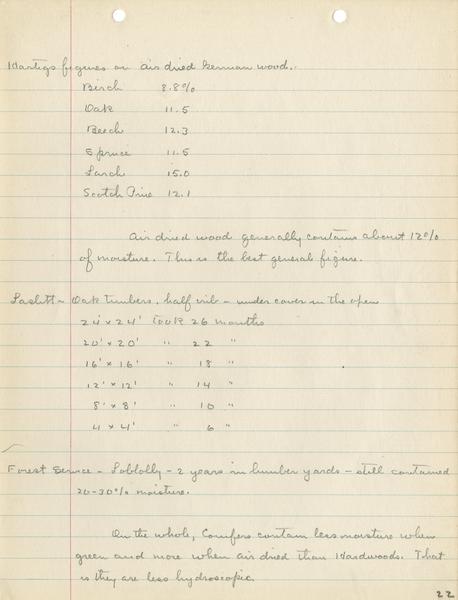 Hartigs figures on air dried German wood.
Birch 8.8%
Oak 11.5
Beech 12.3
Spruce 11.5
Larch 15.0
Scotch Pine 12.1
Air dried wood generally contains about 12%
of moisture. This is the best general figure.
Laslett - Oak timbers, half rib - under cover in the open
24' x 24' Took 26 months
20' x 20' " 22 "
16' x 16' " 18 "
12' x 12' " 14 "
8' x 8' " 10 "
4 x 4' " 6 "
Forest Service - Loblolly - 2 years in lumber yards - still contained
20-30% moisture.
On the whole, Conifers contain less moisture when
green and more when air dried than Hardwoods. That
is they are less hydroscopic.
22